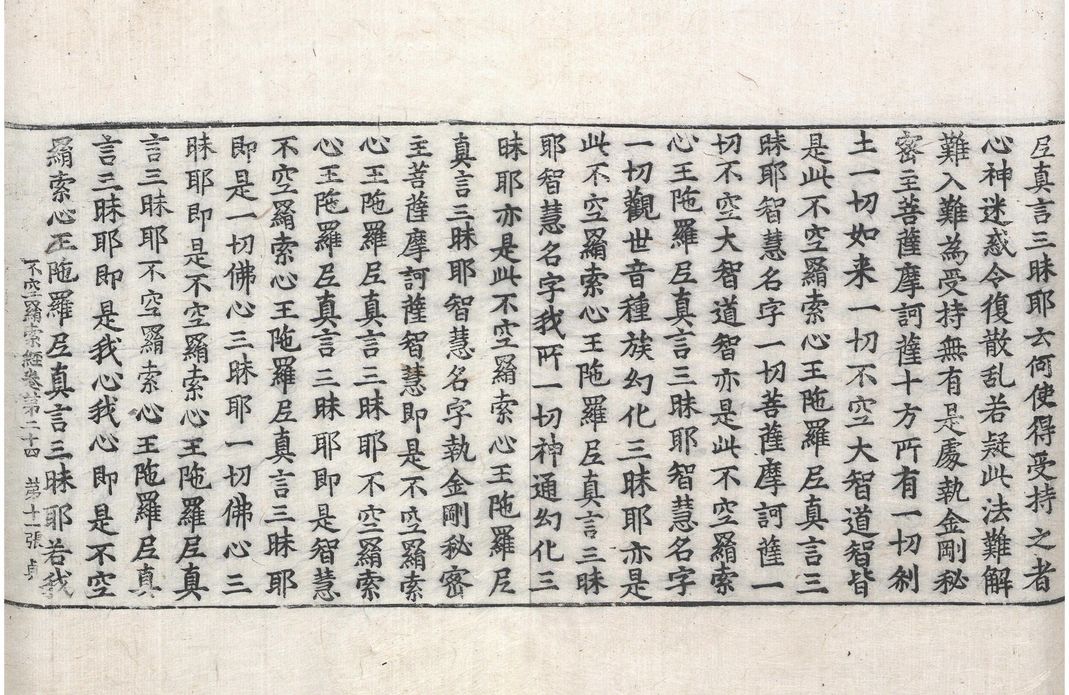 尼真言三昧耶云何使得受持之者
心神迷惑令復散乱若疑此法難解
難入難為受持無有是處執金剛秘
密主菩薩摩訶薩十方所有一切刹
土一切如来一切不空大智道智皆
是此不空羂索心王陁羅尼真言三
昧耶智慧名字一切菩薩摩訶薩一
切不空大智道智亦是此不空羂索
心王陁羅尼真言三昧耶智慧名字
一切觀世音種族幻化三昧耶亦是
此不空羂索心王陁羅尼真言三昧
耶智慧名字我所一切神通幻化三
昧耶亦是此不空羂索心王陁羅尼
真言三昧耶智慧名字執金剛秘密
主菩薩摩訶薩智慧即是不空羂索
心王陁羅尼真言三昧耶不空羂索
心王陁羅尼真言三昧耶即是智慧
不空羂索心王陁羅尼真言三昧耶
即是一切佛心三昧耶一切佛心三
昧耶即是不空羂索心王陁羅尼真
言三昧耶不空羂索心王陁羅尼真
言三昧耶即是我心我心即是不空
羂索心王陁羅尼真言三昧耶若我
不空羂索經卷第二十四 第十一張 貞